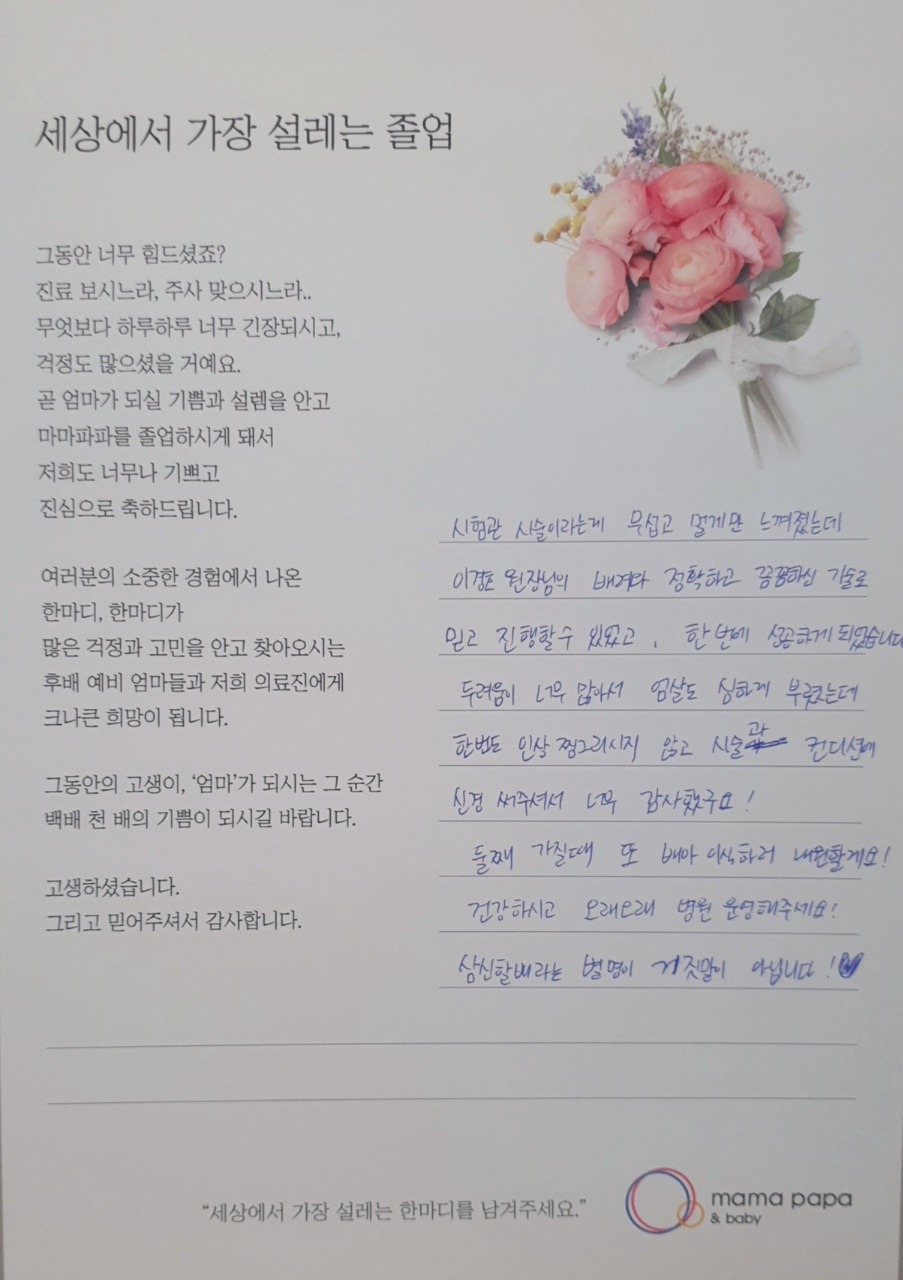 세상에서 가장 설레는 졸업
그동안 너무 힘드셨죠?
진료 보시느라, 주사 맞으시느라..
무엇보다 하루하루 너무 긴장되시고,
걱정도 많으셨을 거예요.
곧 엄마가 되실 기쁨과 설렘을 안고
마마파파를 졸업하시게 돼서
저희도 너무나 기쁘고
진심으로 축하드립니다.
여러분의 소중한 경험에서 나온
한마디, 한마디가
많은 걱정과 고민을 안고 찾아오시는
후배 예비 엄마들과 저희 의료진에게
크나큰 희망이 됩니다.
그동안의 고생이, '엄마'가 되시는 그 순간
백배 천 배의 기쁨이 되시길 바랍니다.
고생하셨습니다.
그리고 믿어주셔서 감사합니다.
시험관 시술이라는게 무섭고 멀게만 느껴졌는데
원장님의 배려와 정확하고 꼼꼼하신 기술로
믿고 진행할 수 있었고, 한 번에 성공하게 되었습니다
두려움이 너무 많아서 엄살도 심하게 부렸는데
한번도 인상 찡그리시지 않고 시술과 컨디션에
신경 써주셔서 너무 감사했구요!
둘째 가질때 또 배아 이식하러 내원할게요!
건강하시고 오래오래 병원 운영해주세요!
삼신할배라는 별명이 거짓말이 아닙니다!
"세상에서 가장 설레는 한마디를 남겨주세요."
mama papa
& baby